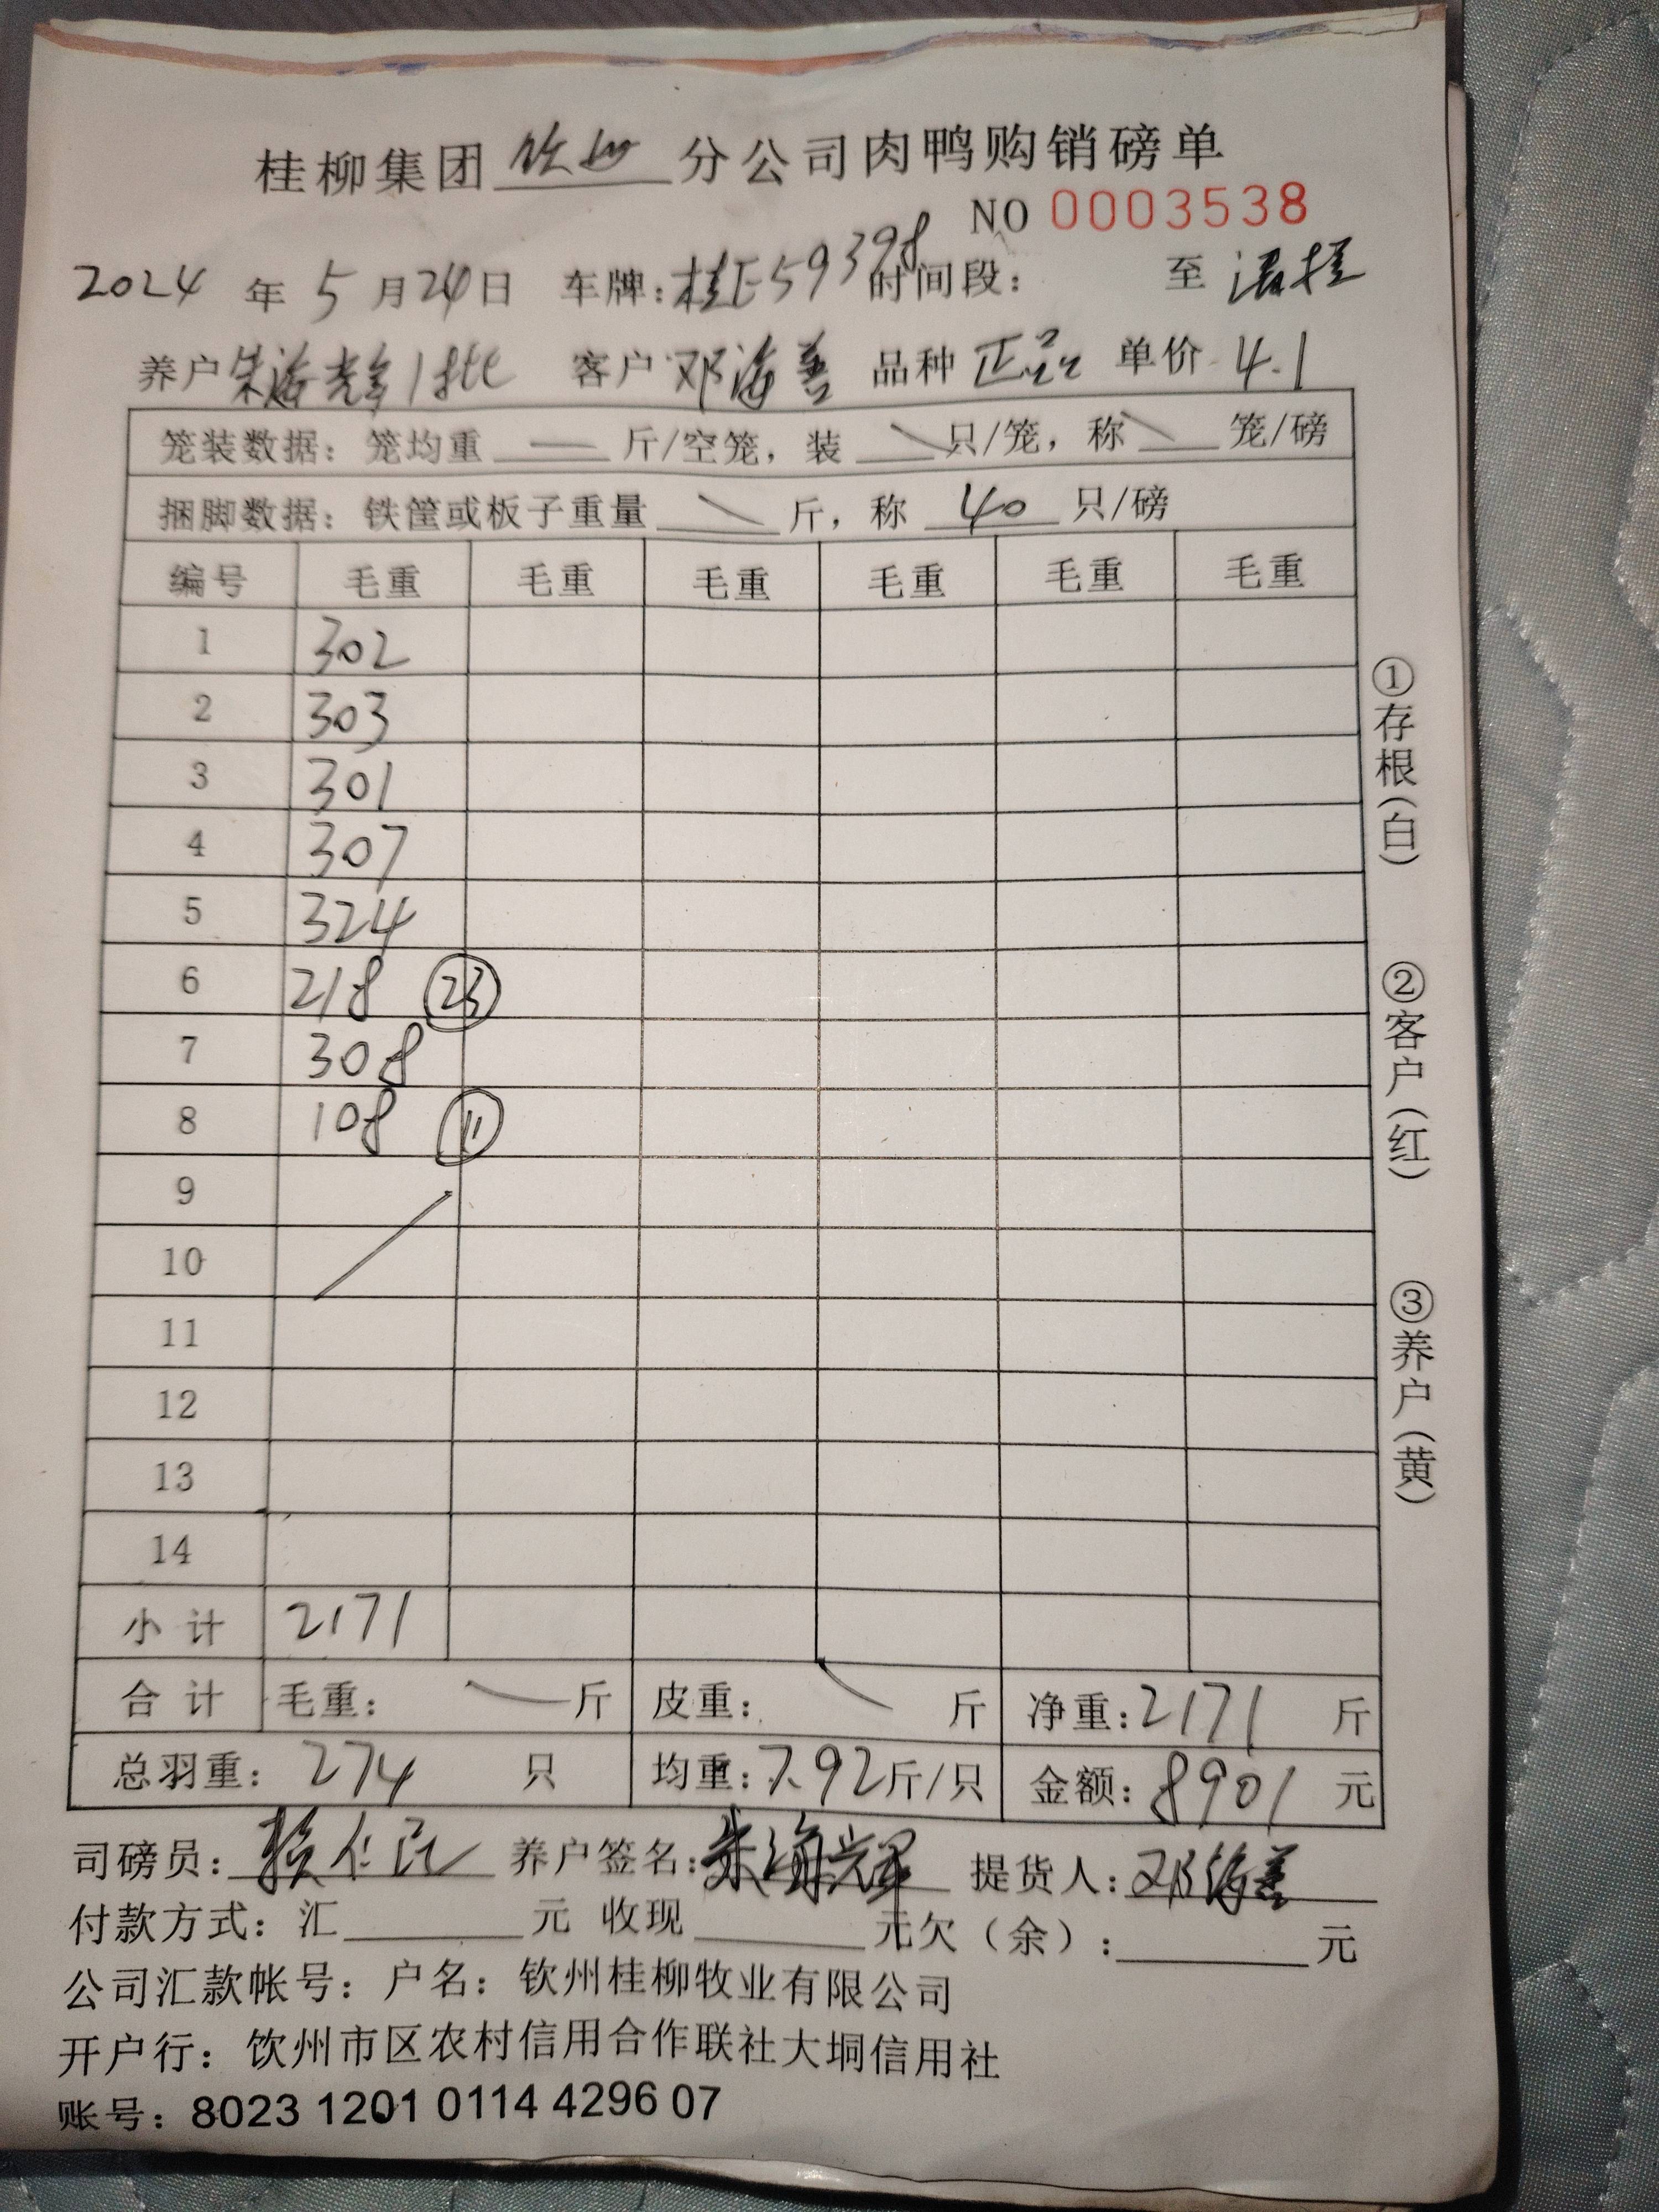 桂柳集团钦州分公司肉鸭购销磅单
NO 0003538
2024年5月24日 车牌:桂E59398 时间段: 至
养户朱海辉1批 客户邓海善 品种正品 单价4.1
笼装数据: 笼均重 — 斤/空笼, 装 \ 只/笼, 称 \ 笼/磅
捆脚数据: 铁筐或板子重量 \ 斤, 称 40 只/磅
编号 毛重 毛重 毛重 毛重 毛重 毛重
1 302
2 303
3 301
4 307
5 324
6 218 ㉓
7 308
8 108 ⑪
9
10
11
12
13
14
小计 2171
合计 毛重: — 斤 皮重: \ 斤 净重:2171 斤
总羽重: 274 只 均重:7.92斤/只 金额:8901元
司磅员: 养户签名:朱海辉 提货人:邓海善
付款方式: 汇 元 收现 元欠(余): 元
公司汇款帐号: 户名: 钦州桂柳牧业有限公司
开户行: 钦州市区农村信用合作联社大垌信用社
账号: 8023 1201 0114 4296 07
①存根(白)
②客户(红)
③养户(黄)